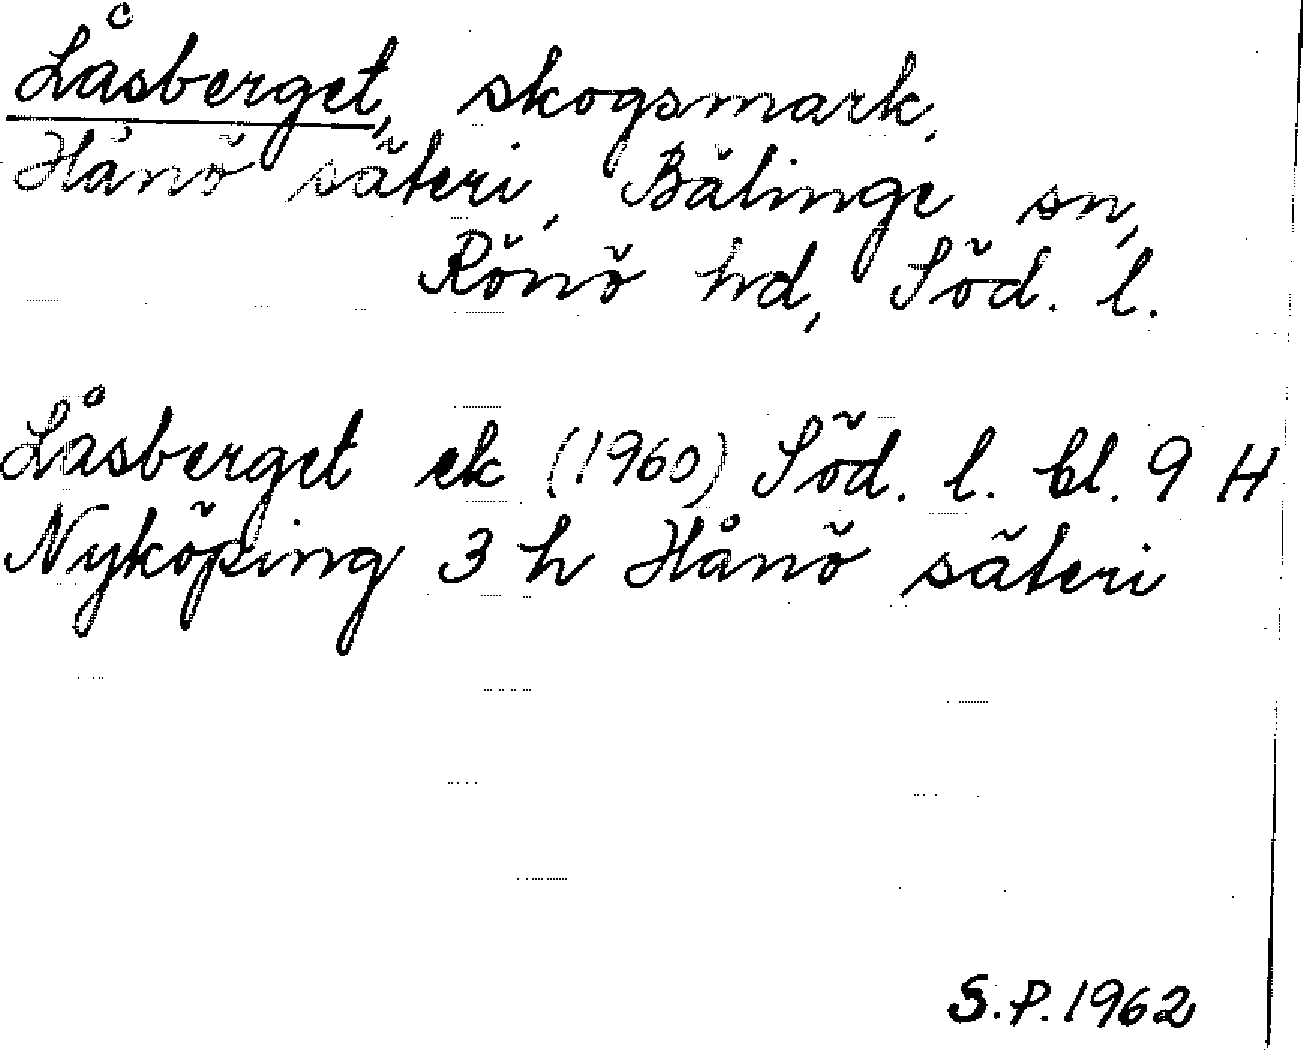 Låsberget, skogsmark,
Hånö säteri, Bälinge sn,
Rönö hd, Söd. l.
Låsberget ek (1960) Söd. l. bl. 9 H
Nyköping 3 h Hånö säteri
S.P. 1962